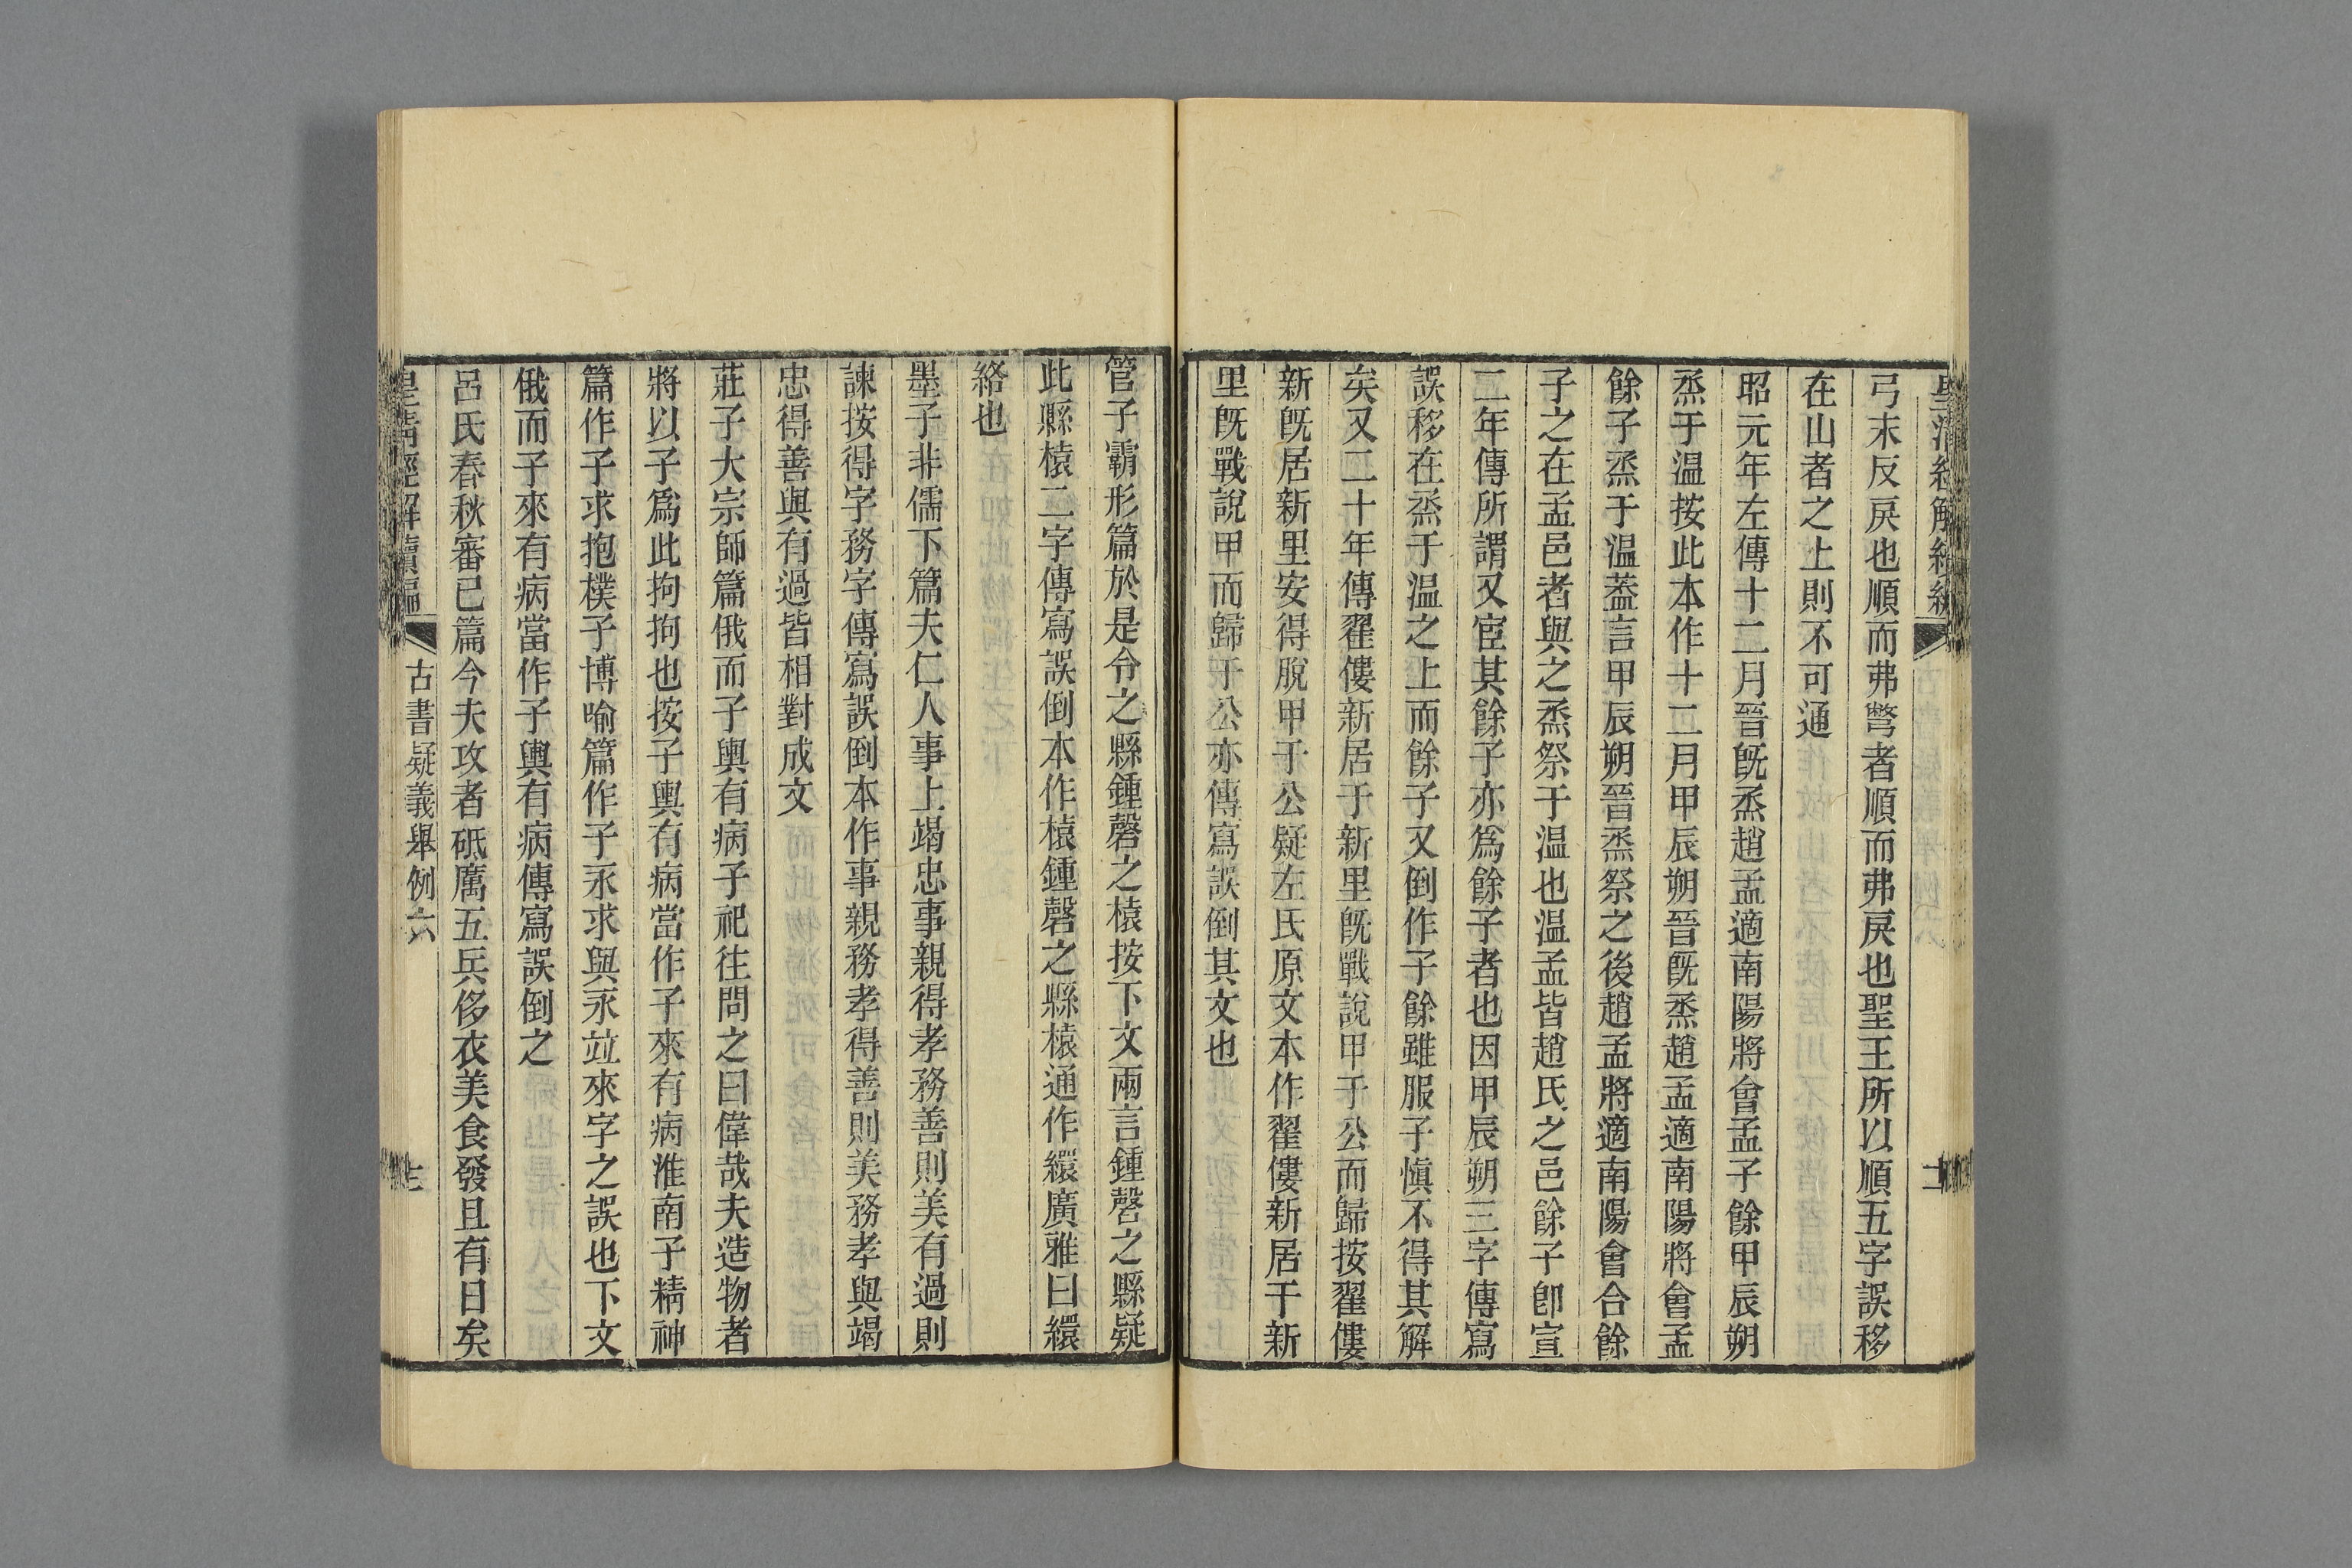 弓末反戾也順而弗彆者順而弗戾也聖王所以順五字誤移
在山者之上則不可通
昭元年左傳十二月晉旣烝趙孟適南陽將會孟子餘甲辰朔
烝于温按此本作十二月甲辰朔晉旣烝趙孟適南陽將會孟
餘子烝于温葢言甲辰朔晉烝祭之後趙孟將適南陽會合餘
子之在孟邑者與之烝祭于温也温孟皆趙氏之邑餘子卽宣
二年傳所謂又宦其餘子亦爲餘子者也因甲辰朔三字傳寫
誤移在烝于温之上而餘子又倒作子餘雖服子愼不得其解
矣又二十年傳翟僂新居于新里旣戰說甲于公而歸按翟僂
新旣居新里安得脫甲于公疑左氏原文本作翟僂新居于新
里旣戰說甲而歸于公亦傳寫誤倒其文也
管子霸形篇於是令之縣鍾磬之榬按下文兩言鍾磬之縣疑
此縣榬二字傳寫誤倒本作榬鍾磬之縣榬通作繯廣雅曰繯
絡也
墨子非儒下篇夫仁人事上竭忠事親得孝務善則美有過則
諫按得字務字傳寫誤倒本作事親務孝得善則美務孝與竭
忠得善與有過皆相對成文
莊子大宗師篇俄而子輿有病子祀往問之曰偉哉夫造物者
將以子爲此拘拘也按子輿有病當作子來有病淮南子精神
篇作子求抱樸子博喻篇作子永求與永竝來字之誤也下文
俄而子來有病當作子輿有病傳寫誤倒之
呂氏春秋審已篇今夫攻者砥厲五兵侈衣美食發且有日矣
皇淸經解續編
古書疑義舉例六